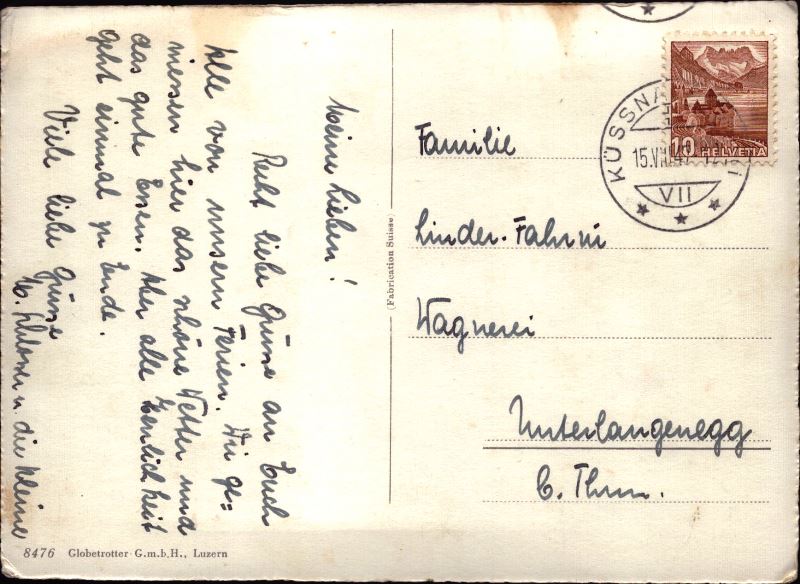 Meine Lieben!
Recht liebe Grüsse an Euch
Alle von unsern Ferien. Wir ge-
niessen hier das schöne Wetter und
das gute Essen. Aber alle Herrlichkeit
geht einmal zu Ende.
Viele liebe Grüsse
u. die Kleine
8476 Globetrotter G.m.b.H., Luzern
(Fabrication Suisse)
KÜSSNA
15.VII
VII
10 HELVETIA
Familie
Linder-Fahrni
Wagnerei
Unterlangenegg
b. Thun.